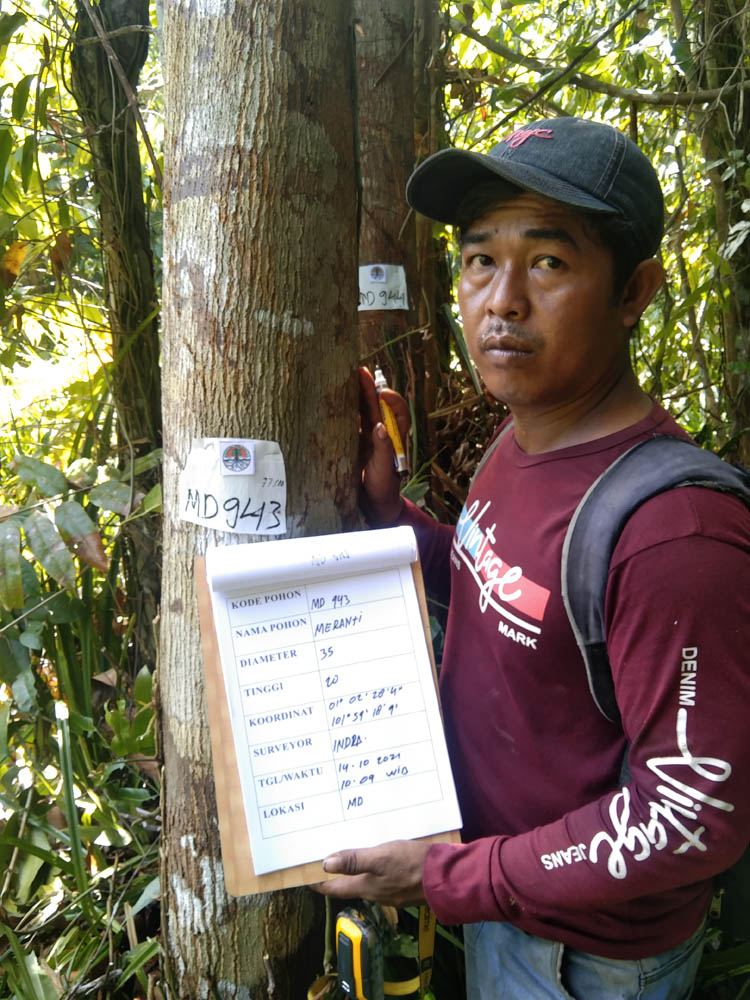 MD 9441
77.500
MD 943
KODE POHON MD 943
NAMA POHON MERANTI
DIAMETER 35
TINGGI 20
KOORDINAT 01° 02' 28'4"
101° 59' 18'9"
SURVEYOR INDRA.
TGL/WAKTU 14-10 2021
10.09 WIB
LOKASI MD
Vintage
MARK
DENIM
Vintage
JEANS